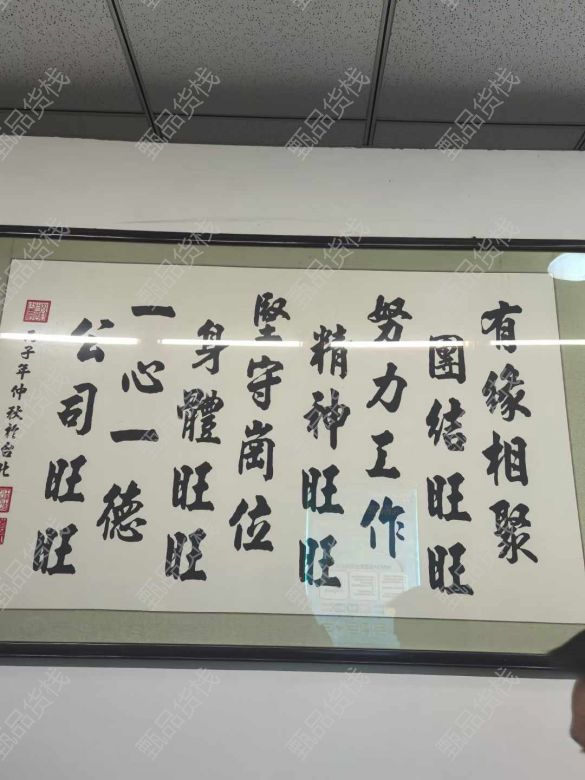 有缘相聚
團結旺旺
努力工作
精神旺旺
堅守崗位
身體旺旺
一心一德
公司旺旺
丙子年仲秋於台北
甄品货栈